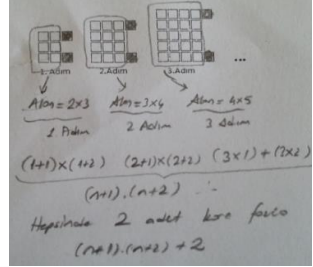 1. Adım 2.Adım 3.Adım ...
Alan=2x3 Alan=3x4 Alan=4x5
1 Adım 2 Adım 3 Adım
(1+1)x(1+2) (2+1)x(2+2) (3x1)+(2x2)
(n+1).(n+2)
Hepsinde 2 adet kare fazla
(n+1).(n+2)+2